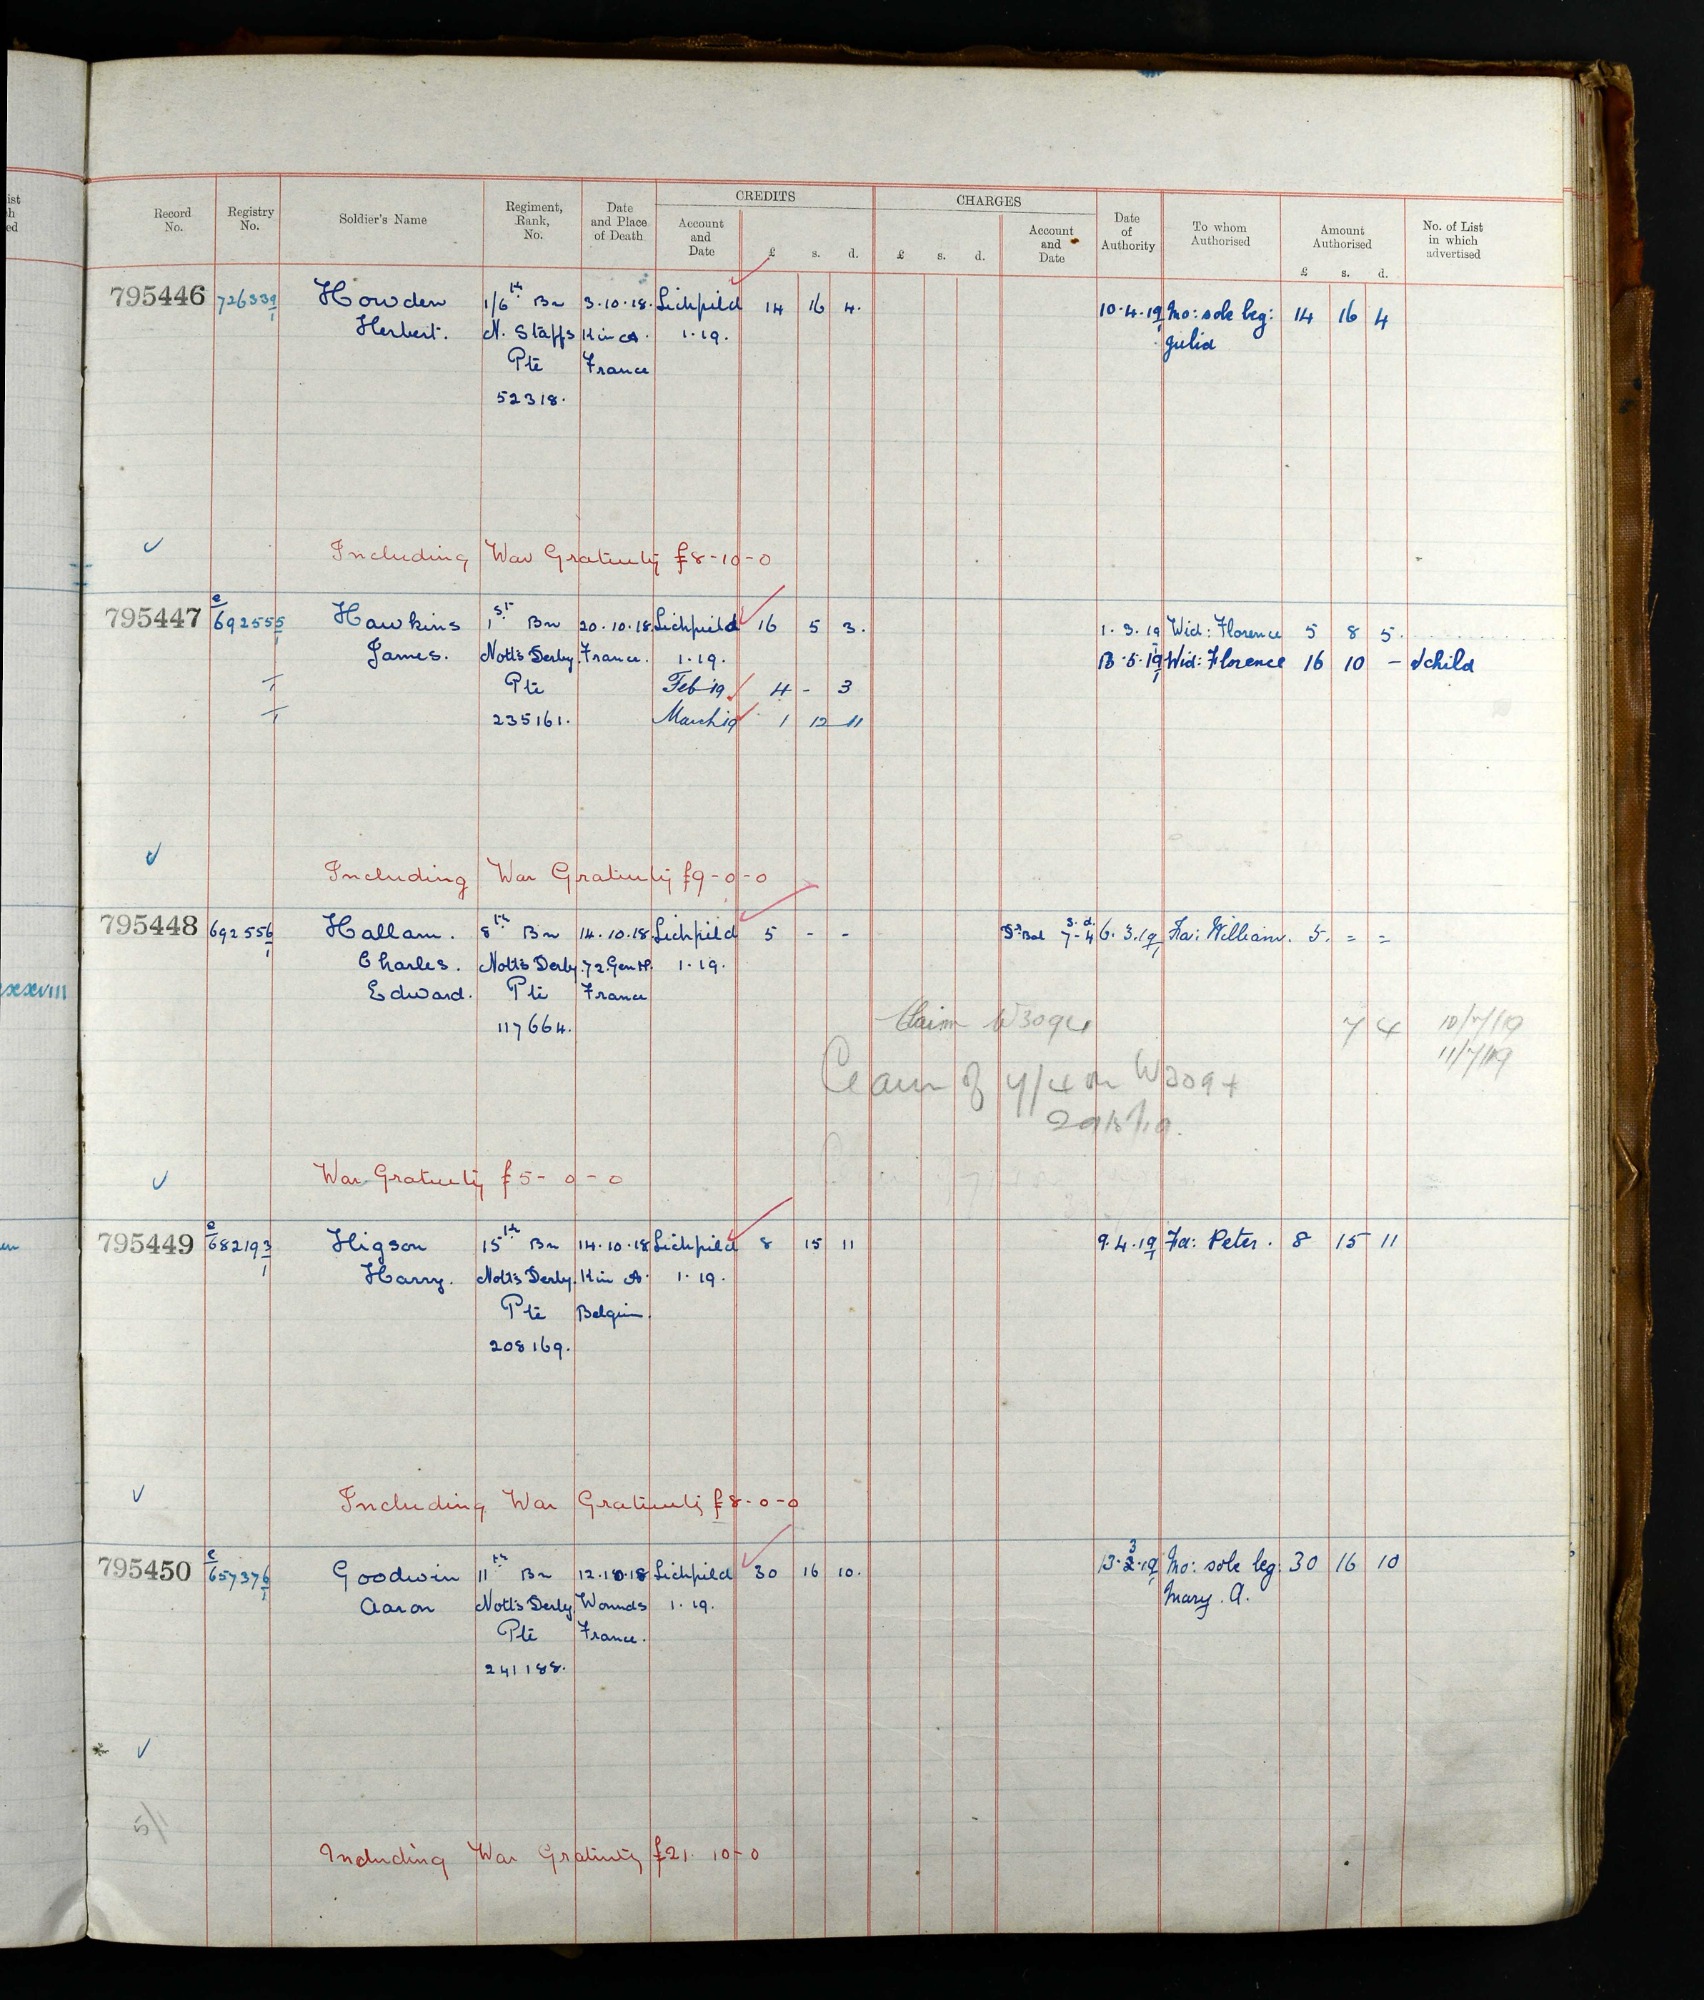 Record No.
Registry No.
Soldier's Name
Regiment, Rank, No.
Date and Place of Death
CREDITS
Account and Date
£ s. d.
CHARGES
£ s. d.
Account and Date
Date of Authority
To whom Authorised
Amount Authorised
£ s. d.
No. of List in which advertised
795446 726339/1 Howden 1/6th Bn 3.10.18. Lichfield 14 16 4. 10.4.19 Mo: sole leg: 14 16 4
Herbert. N. Staffs K in A. 1.19. Julia
Pte France
52318.
Including War Gratuity £8-10-0
795447 e/692555/1 Hawkins 1st Bn 20.10.18 Lichfield 16 5 3. 1.3.19 Wid: Florence 5 8 5.
James. Notts Derby. France. 1.19. 13.5.19 Wid: Florence 16 10 - & child
Pte Feb 19 4 - 3
235161. March 19 1 12 11
Including War Gratuity £9-0-0
795448 692556/1 Hallam. 8th Bn 14.10.18 Lichfield 5 - - Dr Bal s. d. 7-4 6.3.19 Fa: William. 5. = =
Charles. Notts Derby. 72 Gen H. 1.19.
Edward. Pte France
xxviii
117664.
Claim W3094 7 4 10/7/19
11/7/19
Claim of 7/4 on W3094
War Gratuity £5-0-0
795449 e/682193/1 Higson 15th Bn 14.10.18 Lichfield 8 15 11 9.4.19 Fa: Peter. 8 15 11
Harry. Notts Derby. K in A. 1.19.
Pte Belgium.
208169.
Including War Gratuity £8-0-0
795450 e/657376/1 Goodwin 11th Bn 12.10.18 Lichfield 30 16 10. 13.3.19 Mo: sole leg: 30 16 10
Aaron Notts Derby Wounds 1.19. Mary. A.
Pte France.
241188.
5/1
Including War Gratuity £21.10-0